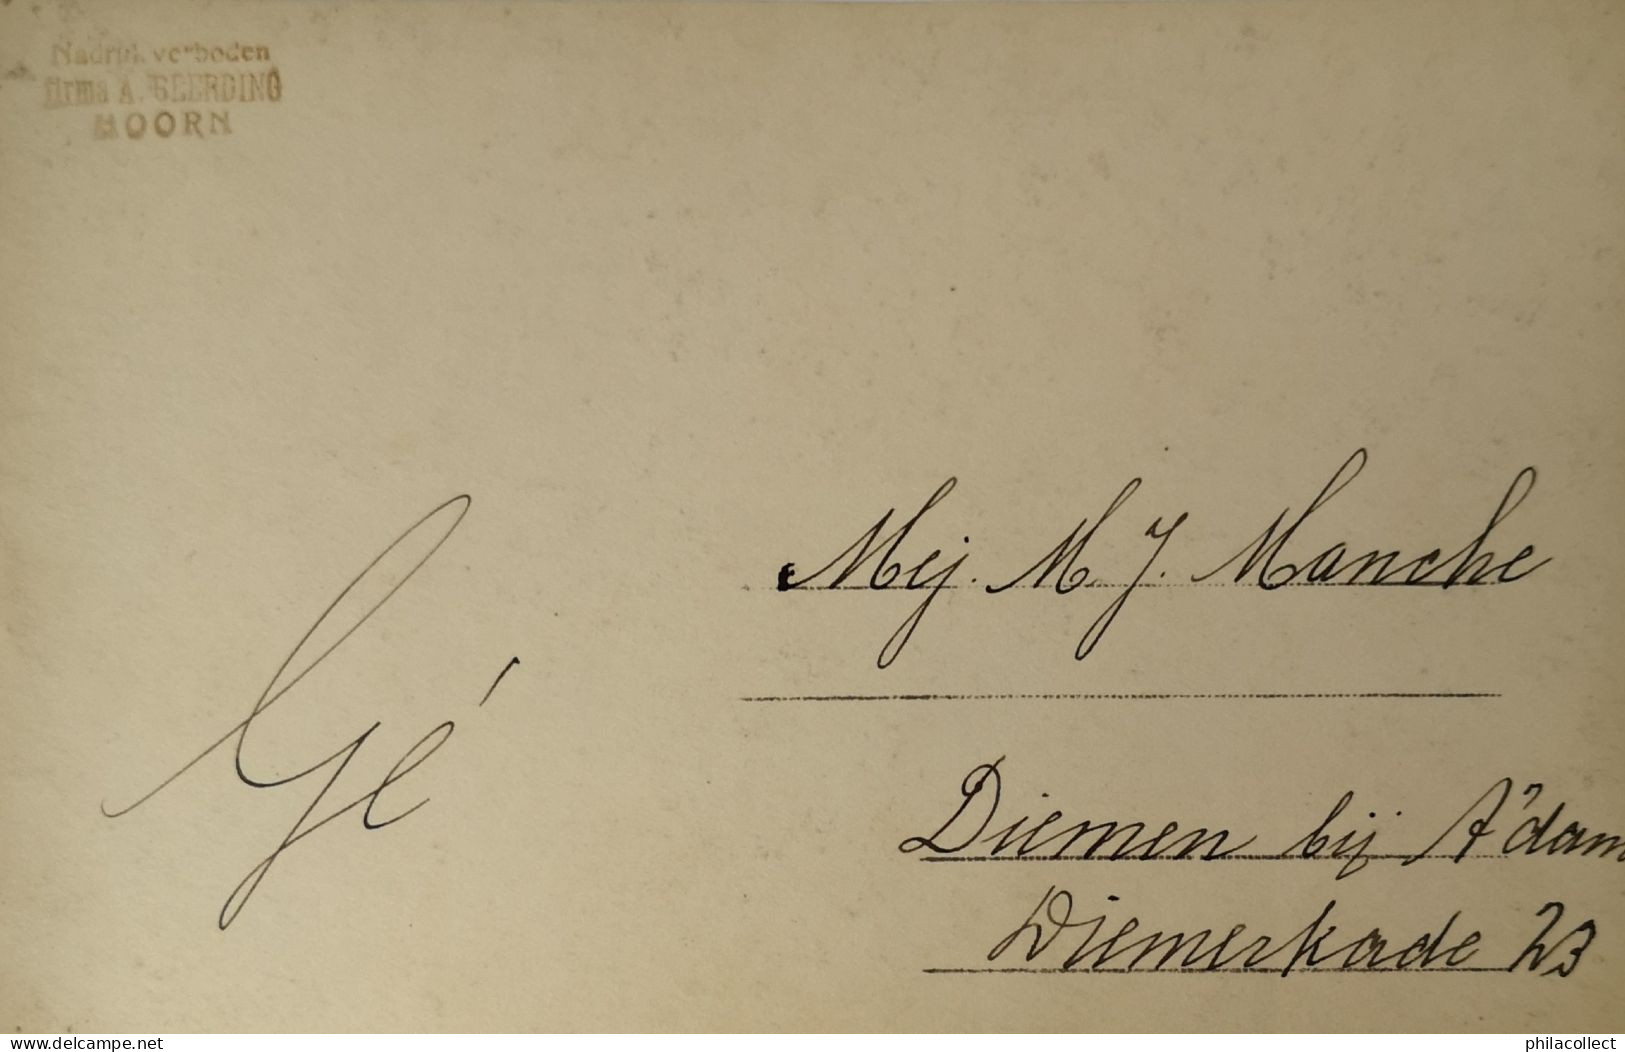 Nadruk verboden
firma A. GEERDING
HOORN
Mej. M. J. Manche
Gé
Diemen bij A'dam
Diemerkade 23
www.delcampe.net
philacollect